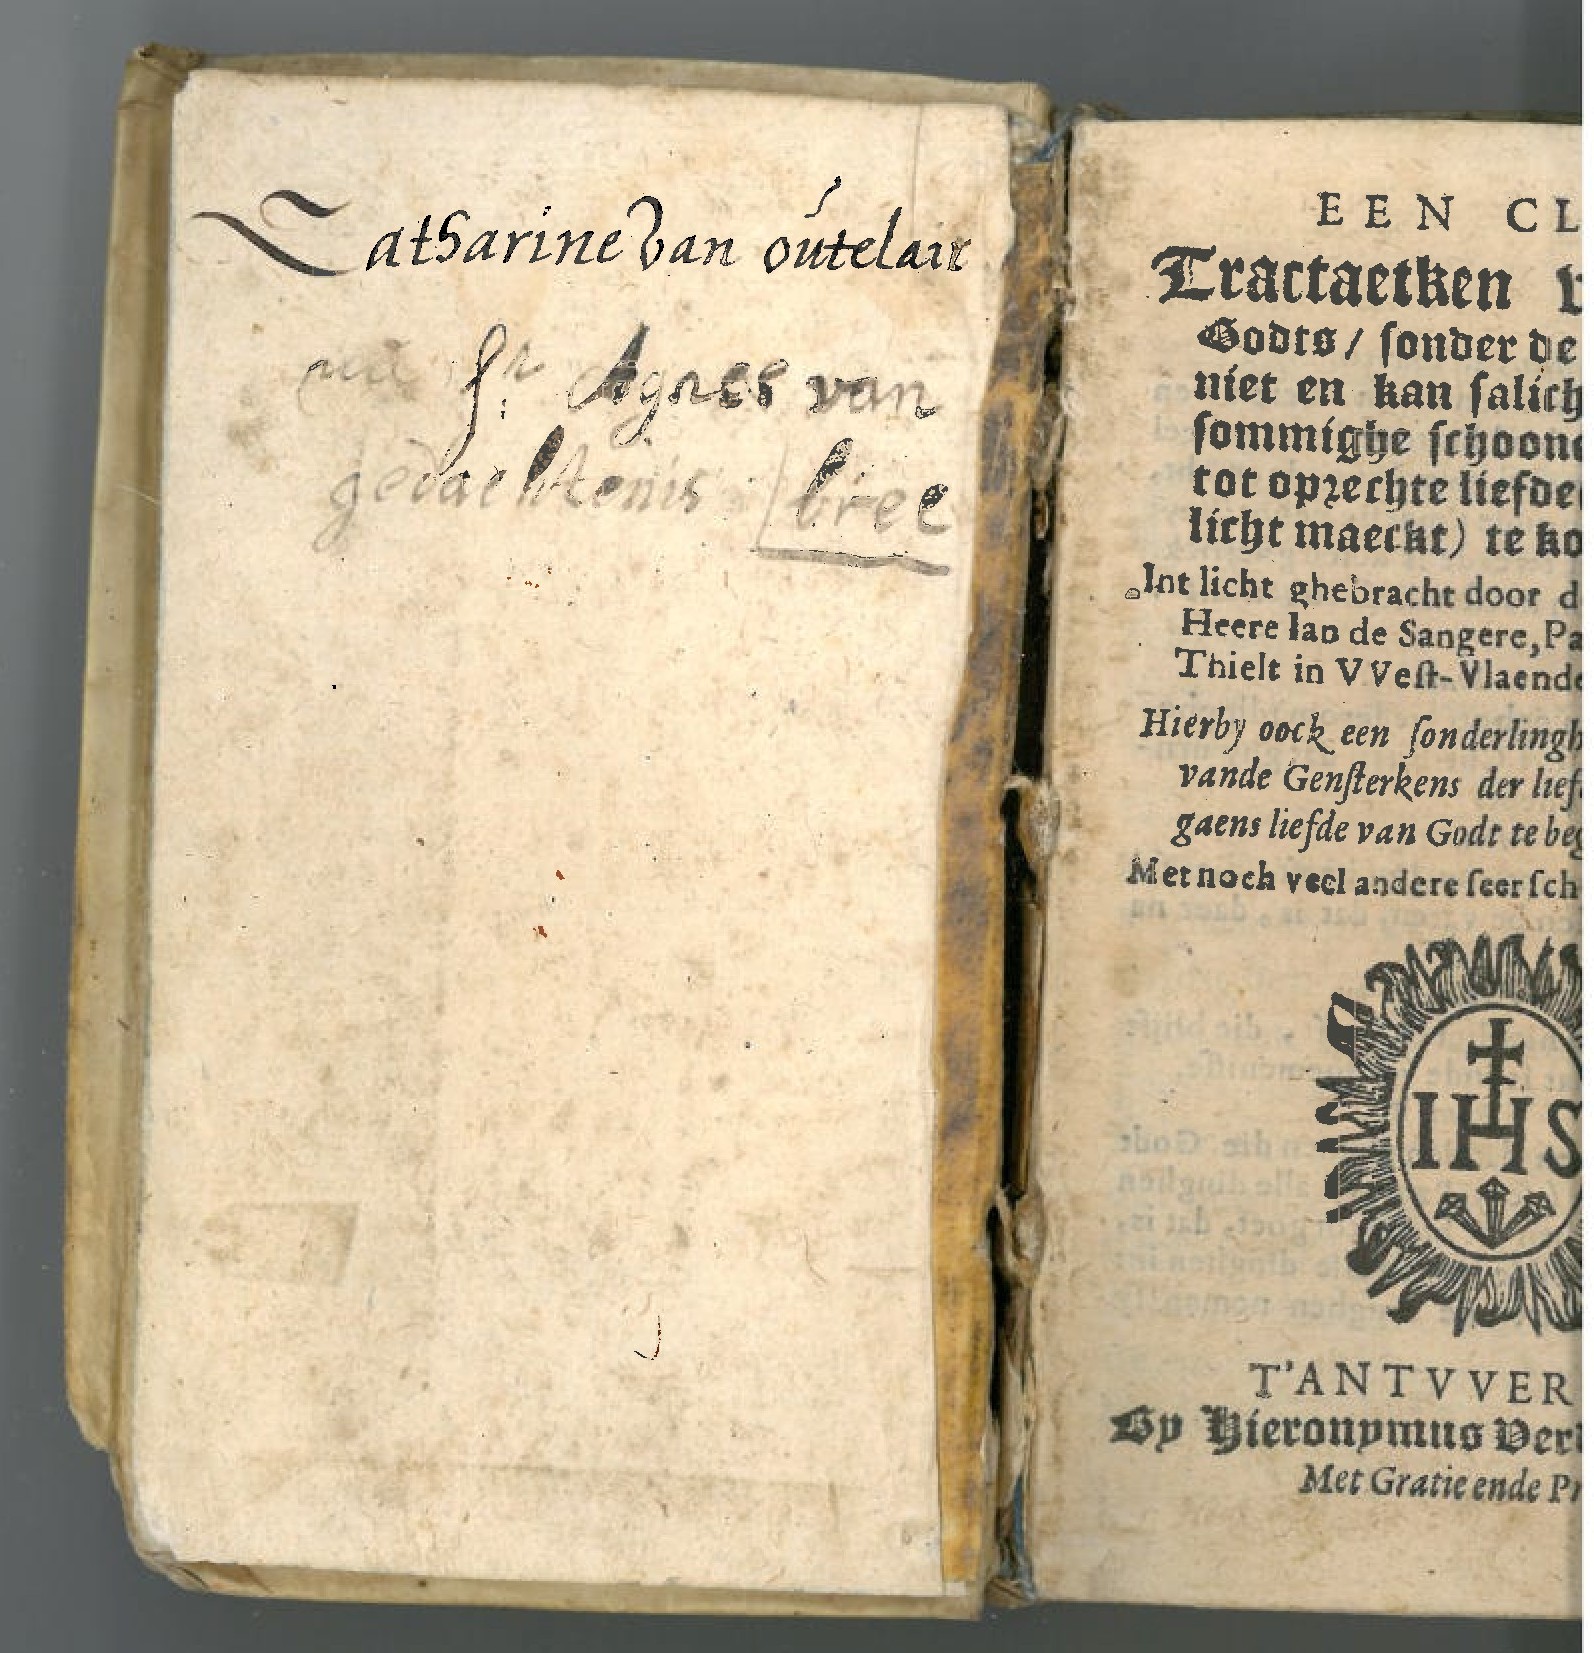 Catharine van outelair
Sr Agnes van
gedachtenis bree
EEN CL
Tractaetken v
Godts / sonder de
niet en kan salich
sommighe schoone
tot oprechte liefde
licht maeckt) te ko
Int licht ghebracht door d
Heere Ian de Sangere, Pa
Thielt in VVest-Vlaende
Hierby oock een sonderlingh
vande Gensterkens der lief
gaens liefde van Godt te beg
Met noch veel andere seer sch
IHS
T'ANTVVER
By Hieronymus Ver
Met Gratie ende Pr